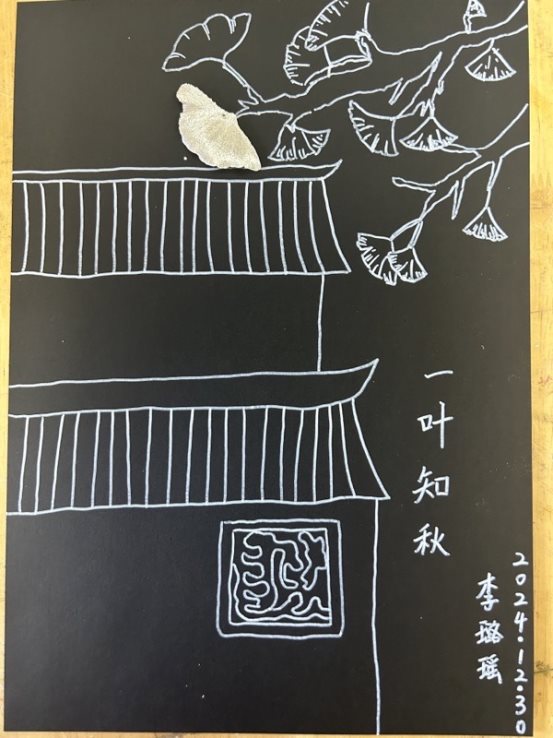 一叶知秋
李璐瑶
2024.12.30